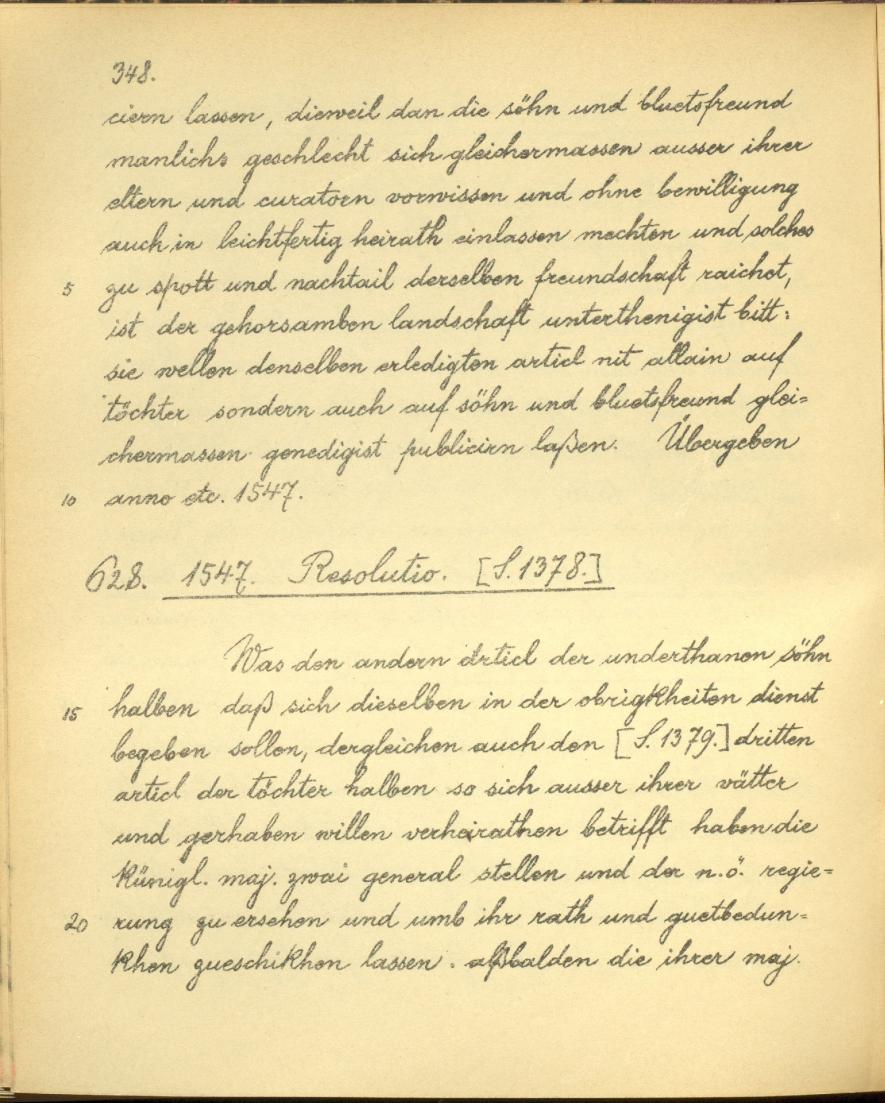 348.
ciern lassen, dieweil dan die söhn und bluetsfreund
manlichs geschlecht sich gleichermassen ausser ihrer
eltern und curatorn vorwissen und ohne bewilligung
auch in leichtfertig heirath einlassen mechten und solches
5 zu spott und nachtail derselben freundschaft raichet,
ist der gehorsamben landschaft unterthenigist bitt:
sie wellen denselben erledigten articl nit allain auf
töchter sondern auch auf söhn und bluetsfreund glei=
chermassen genedigist publicirn laßen. Übergeben
10 anno etc. 1547.
628. 1547. Resolutio. [S. 1378.]
Was den andern articl der underthanen söhn
15 halben daß sich dieselben in der obrigkheiten dienst
begeben sollen, dergleichen auch den [S. 1379.] dritten
articl der töchter halben so sich ausser ihrer vätter
und gerhaben willen verheirathen betrifft haben die
künigl. maj. zwai general stellen und der n.ö. regie=
20 rung zu ersehen und umb ihr rath und guetbedun=
khen zueschikhen lassen. alßbalden die ihrer maj.